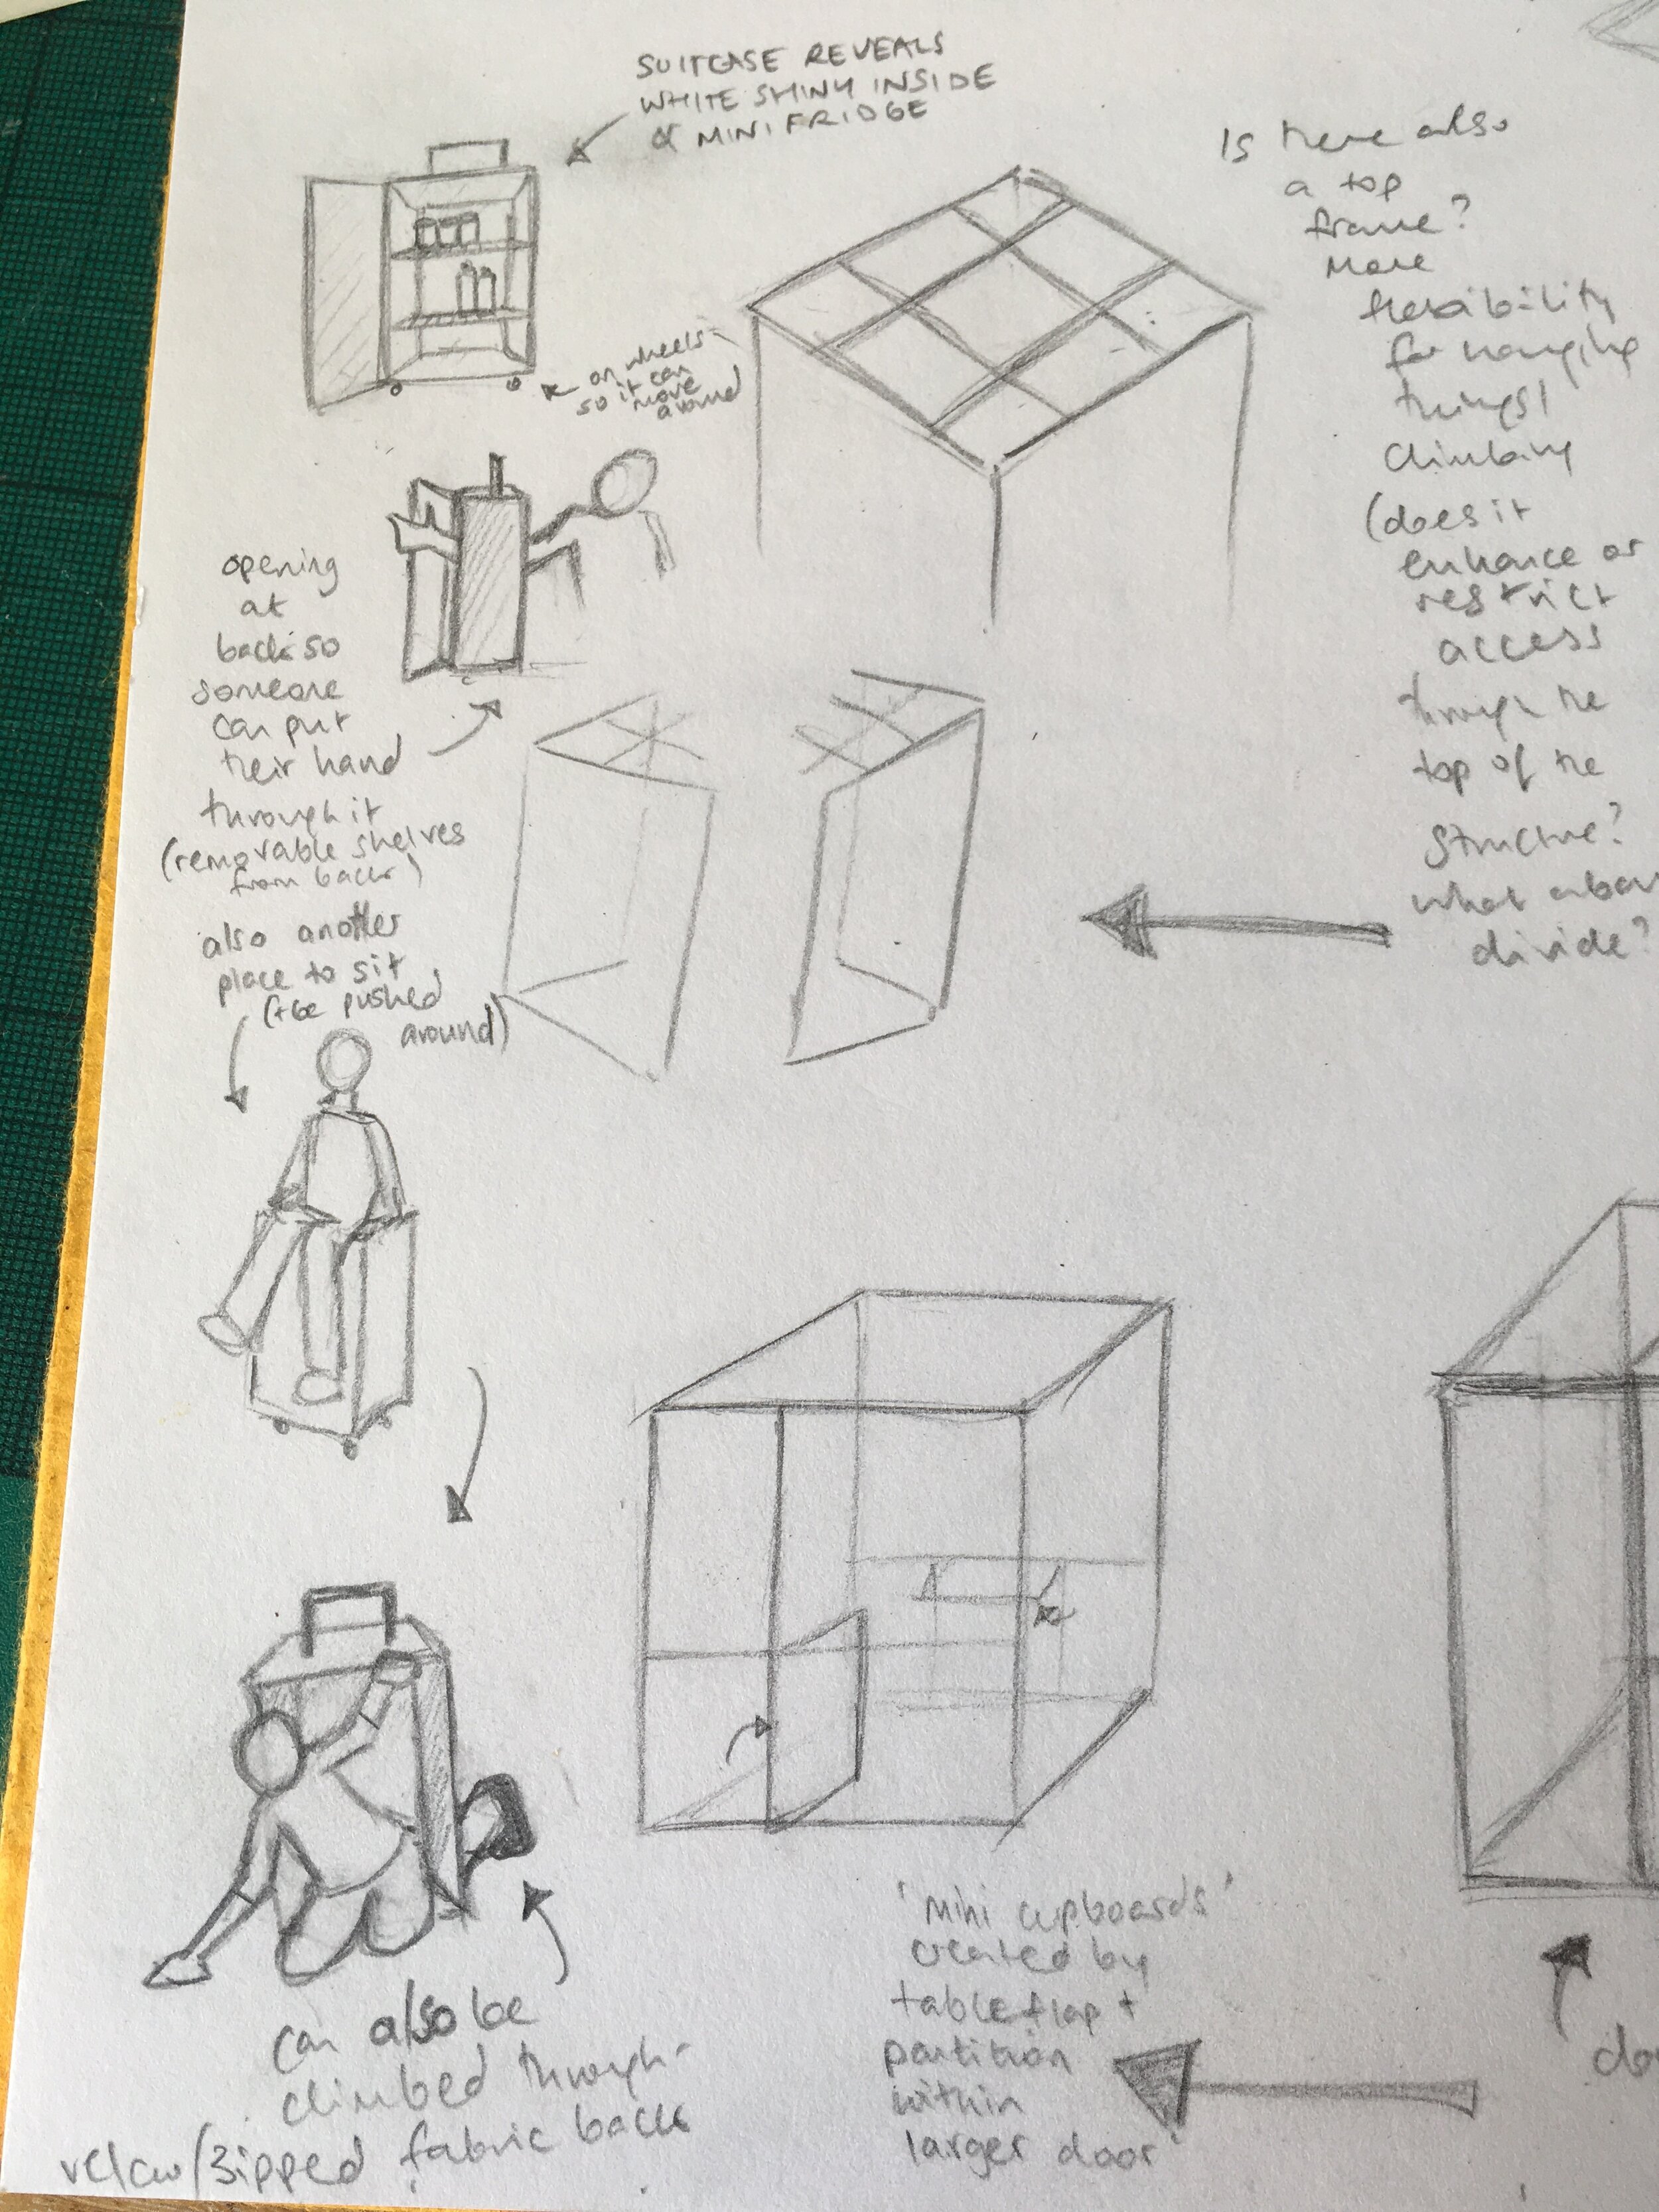 SUITCASE REVEALS
WHITE SHINY INSIDE
OF MINI FRIDGE
on wheels -
so it can
move
around
opening
at
back so
someone
can put
their hand
through it
(removable shelves
from back)
also another
place to sit
(+ be pushed
around)
can also be
climbed through -
velcro/zipped fabric back
Is there also
a top
frame?
More
flexibility
for hanging
things/
climbing
(does it
enhance or
restrict
access
through the
top of the
structure?
what about
divide?
'mini cupboards'
created by
table flap +
partition
within
larger door'